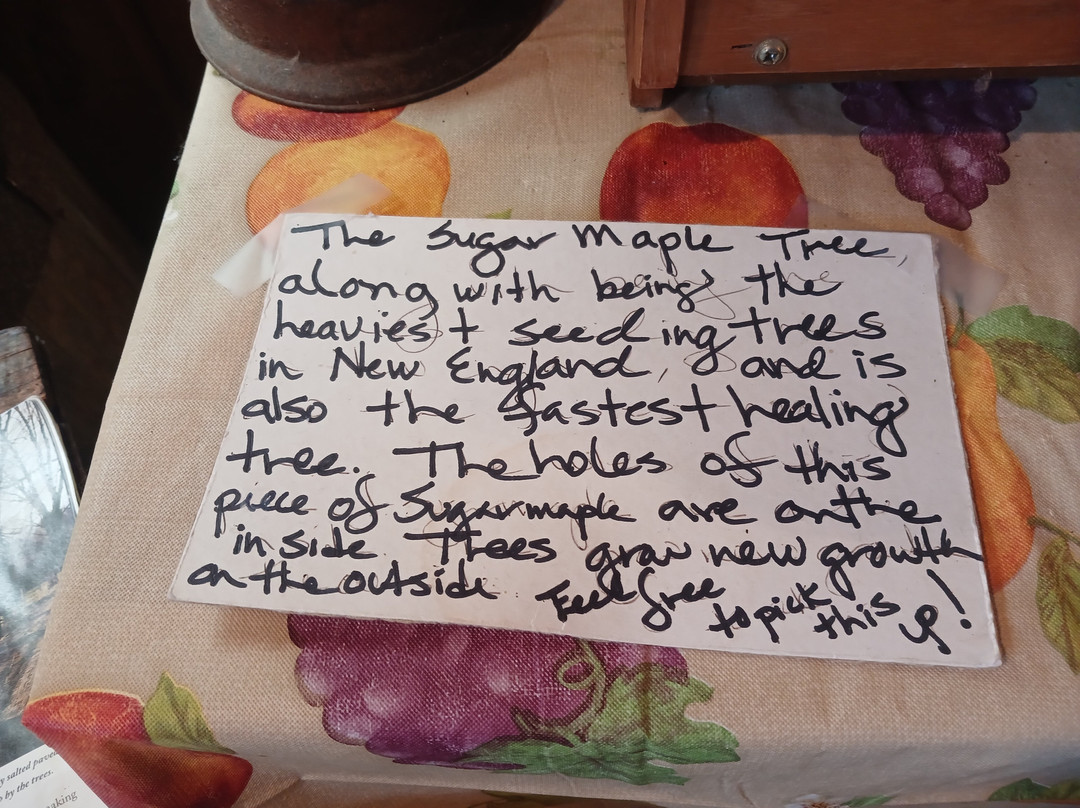 The Sugar Maple Tree,
along with being the
heaviest seeding trees
in New England, and is
also the fastest healing
tree. The holes of this
piece of Sugarmaple are onthe
inside. Trees grow new growth
on the outside. Feel free
to pick
this up!
y salted
by the trees.
making